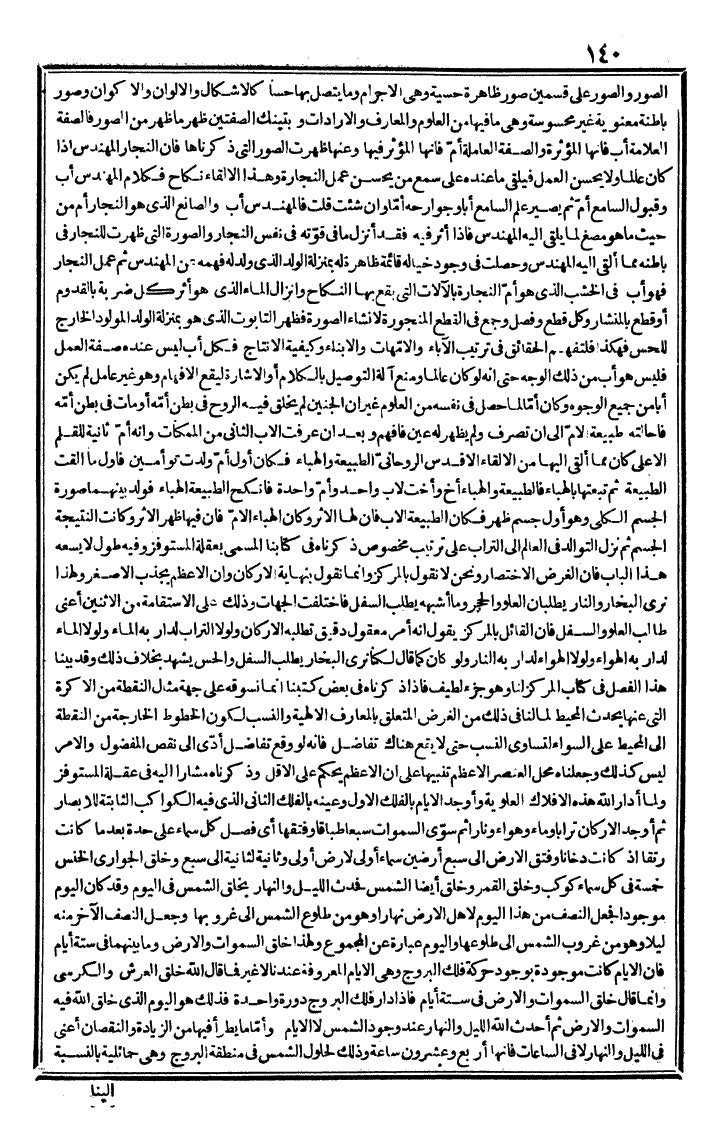 ١٤٠
الصور والصور على قسمين صور ظاهرة حسية وهى الاجرام وما يتصل بها حسا كالاشكال والالوان والاكوان وصور
باطنة معنوية غير محسوسة وهى ما فيها من العلوم والمعارف والارادات وبتينك الصفتين ظهر ما ظهر من الصور فالصفة
العلامة أب فانها المؤثرة والصفة العاملة أمّ فانها المؤثر فيها وعنها ظهرت الصور التى ذكرناها فان النجار المهندس اذا
كان عالما ولا يحسن العمل فيلقى ما عنده على سمع من يحسن عمل النجارة وهذا الالقاء نكاح فكلام المهندس أب
وقبول السامع أمّ ثم يصير علم السامع أبا وجوارحه أمّا وان شئت قلت فالمهندس أب والصانع الذى هو النجار أم من
حيث ما هو مصغ لما يلقى اليه المهندس فاذا أثر فيه فقد أنزل ما فى قوّته فى نفس النجار والصورة التى ظهرت للنجار فى
باطنه مما ألقى اليه المهندس وحصلت فى وجود خياله قائمة ظاهرة له بمنزلة الولد الذى ولد له فهمه عن المهندس ثم عمل النجار
فهو أب فى الخشب الذى هو أمّ النجارة بالآلات التى يقع بها النكاح وانزال الماء الذى هو أثر كل ضربة بالقدوم
أو قطع بالمنشار وكل قطع وفصل وجمع فى القطع المنجورة لانشاء الصورة فظهر التابوت الذى هو بمنزلة الولد المولود الخارج
للحس فهكذا فلتفهم الحقائق فى ترتيب الآباء والامّهات والابناء وكيفية الانتاج فكل أب ليس عنده صفة العمل
فليس هو أب من ذلك الوجه حتى انه لو كان عالما ومنع آلة التوصيل بالكلام أو الاشارة ليقع الافهام وهو غير عامل لم يكن
أبا من جميع الوجوه وكان أمّا لما حصل فى نفسه من العلوم غير ان الجنين لم يخلق فيه الروح فى بطن أمّه أو مات فى بطن أمّه
فاحالته طبيعة الامّ الى ان تصرف ولم يظهر له عين فافهم وبعد ان عرفت الاب الثانى من الممكنات وانه أمّ ثانية للقلم
الاعلى كان مما ألقى اليها من الالقاء الاقدس الروحانى الطبيعة والهباء فكان أول أمّ ولدت توأمين فاول ما القت
الطبيعة ثم تبعتها بالهباء فالطبيعة والهباء أخ وأخت لاب واحد وأمّ واحدة فانكح الطبيعة الهباء فولد بينهما صورة
الجسم الكلى وهو أول جسم ظهر فكان الطبيعة الاب فان لها الاثر وكان الهباء الامّ فان فيها ظهر الاثر وكانت النتيجة
الجسم ثم نزل التوالد فى العالم الى التراب على ترتيب مخصوص ذكرناه فى كتابنا المسمى بعقلة المستوفز وفيه طول لا يسعه
هذا الباب فان الغرض الاختصار ونحن لا نقول بالمركز وانما نقول بنهاية الاركان وان الاعظم يجذب الاصغر ولهذا
نرى البخار والنار يطلبان العلو والحجر وما أشبهه يطلب السفل فاختلفت الجهات وذلك على الاستقامة من الاثنين أعنى
طالب العلو والسفل فان القائل بالمركز يقول انه أمر معقول دقيق تطلبه الاركان ولولا التراب لدار به الماء ولولا الماء
لدار به الهواء ولولا الهواء لدار به النار ولو كان كما قال لكنا نرى البخار يطلب السفل والحس يشهد بخلاف ذلك وقد بينا
هذا الفصل فى كتاب المركز لنا وهو جزء لطيف فاذا ذكرناه فى بعض كتبنا انما نسوقه على جهة مثال النقطة من الاكرة
التى عنها يحدث المحيط لما لنا فى ذلك من الغرض المتعلق بالمعارف الالهية والنسب لكون الخطوط الخارجة من النقطة
الى المحيط على السواء لتساوى النسب حتى لا يقع هناك تفاضل فانه لو وقع تفاضل أدّى الى نقص المفضول والامر
ليس كذلك وجعلناه محل العنصر الاعظم تنبيها على ان الاعظم يحكم على الاقل وذكرناه مشارا اليه فى عقلة المستوفز
ولما أدار الله هذه الافلاك العلوية وأوجد الايام بالفلك الاول وعينه بالفلك الثانى الذى فيه الكواكب الثابتة للابصار
ثم أوجد الاركان ترابا وماء وهواء ونارا ثم سوّى السموات سبعا طباقا وفتقها أى فصل كل سماء على حدة بعد ما كانت
رتقا اذ كانت دخانا وفتق الارض الى سبع أرضين سماء أولى لارض أولى وثانية لثانية الى سبع وخلق الجوارى الخنس
خمسة فى كل سماء كوكب وخلق القمر وخلق أيضا الشمس فحدث الليل والنهار بخلق الشمس فى اليوم وقد كان اليوم
موجودا فجعل النصف من هذا اليوم لاهل الارض نهارا وهو من طلوع الشمس الى غروبها وجعل النصف الآخر منه
ليلا وهو من غروب الشمس الى طلوعها واليوم عبارة عن المجموع ولهذا خلق السموات والارض وما بينهما فى ستة أيام
فان الايام كانت موجودة بوجود حركة فلك البروج وهى الايام المعروفة عندنا لا غير فما قال الله خلق العرش والكرسى
وانما قال خلق السموات والارض فى ستة أيام فاذا دار فلك البروج دورة واحدة فذلك هو اليوم الذى خلق الله فيه
السموات والارض ثم أحدث الله الليل والنهار عند وجود الشمس لا الايام وأمّا ما يطرأ فيها من الزيادة والنقصان أعنى
فى الليل والنهار لا فى الساعات فانها أربع وعشرون ساعة وذلك لحلول الشمس فى منطقة البروج وهى حمائلية بالنسبة
الينا